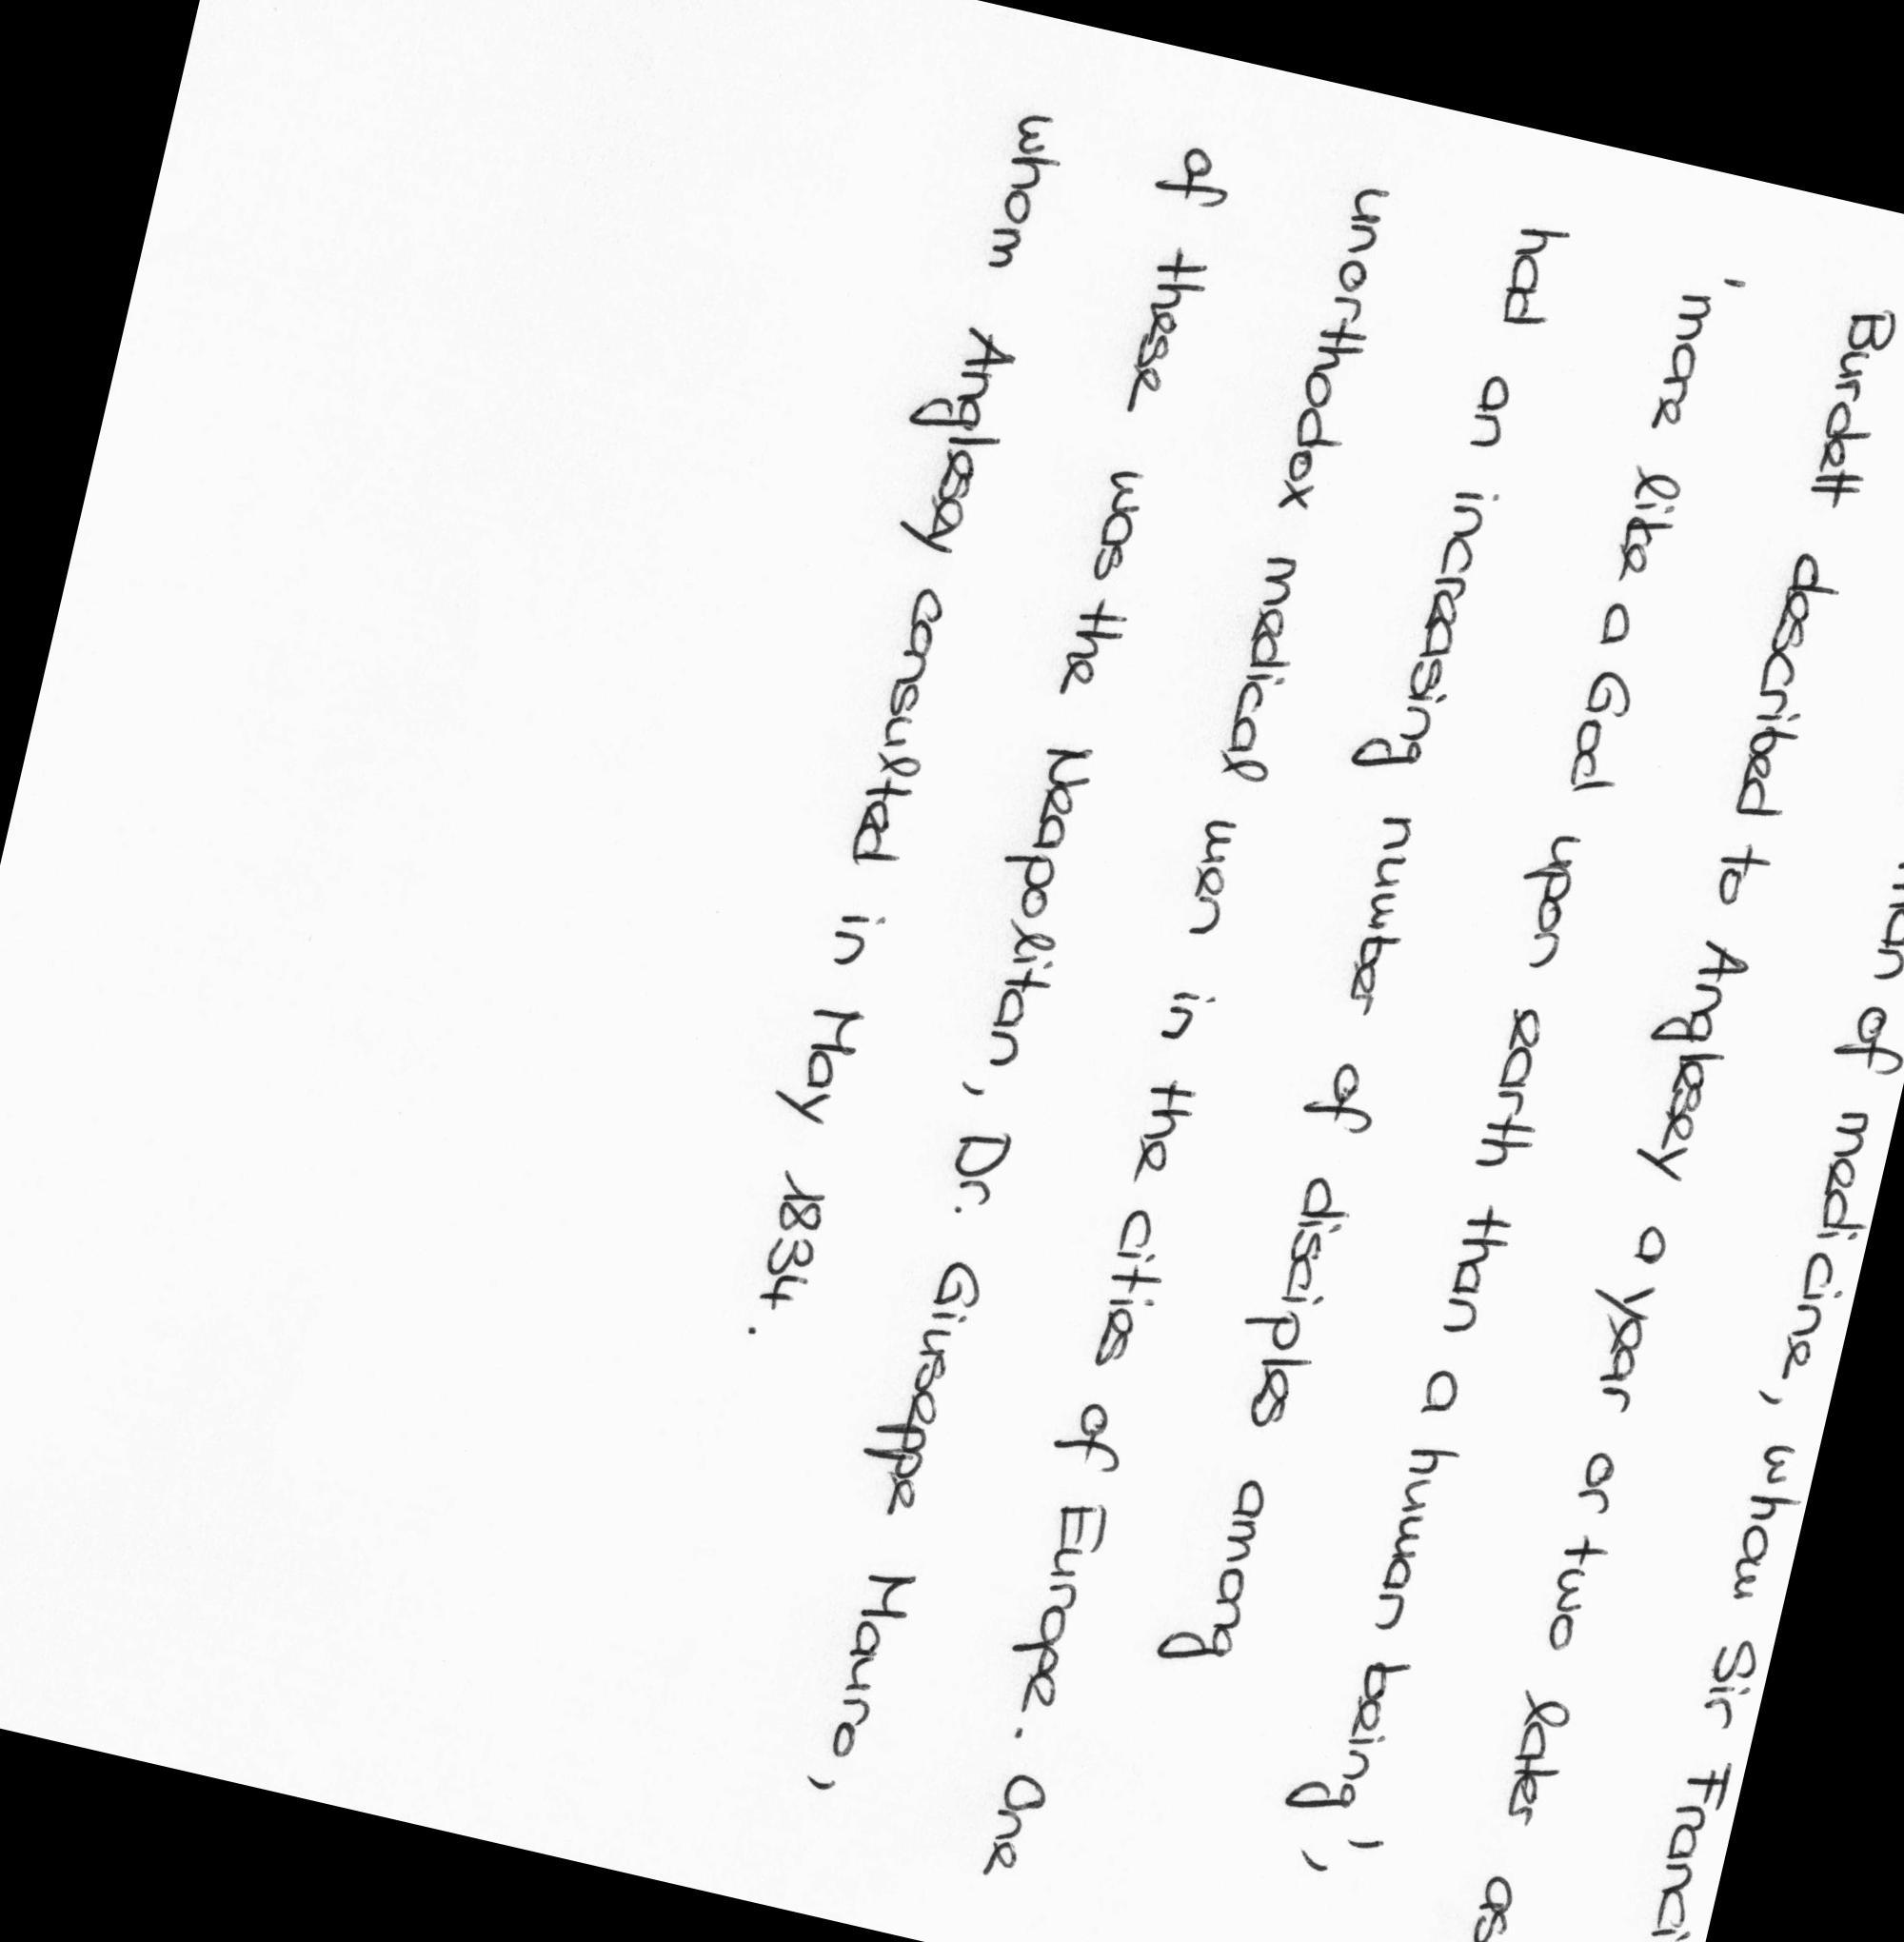 man of medicine, whom Sir Franci
Burdett described to Anglesey a year or two later as
'more like a God upon earth than a human being',
had an increasing number of disciples among
unorthodox medical men in the cities of Europe. One
of these was the Neapolitan, Dr. Giuseppe Mauro,
whom Anglesey consulted in May 1834.